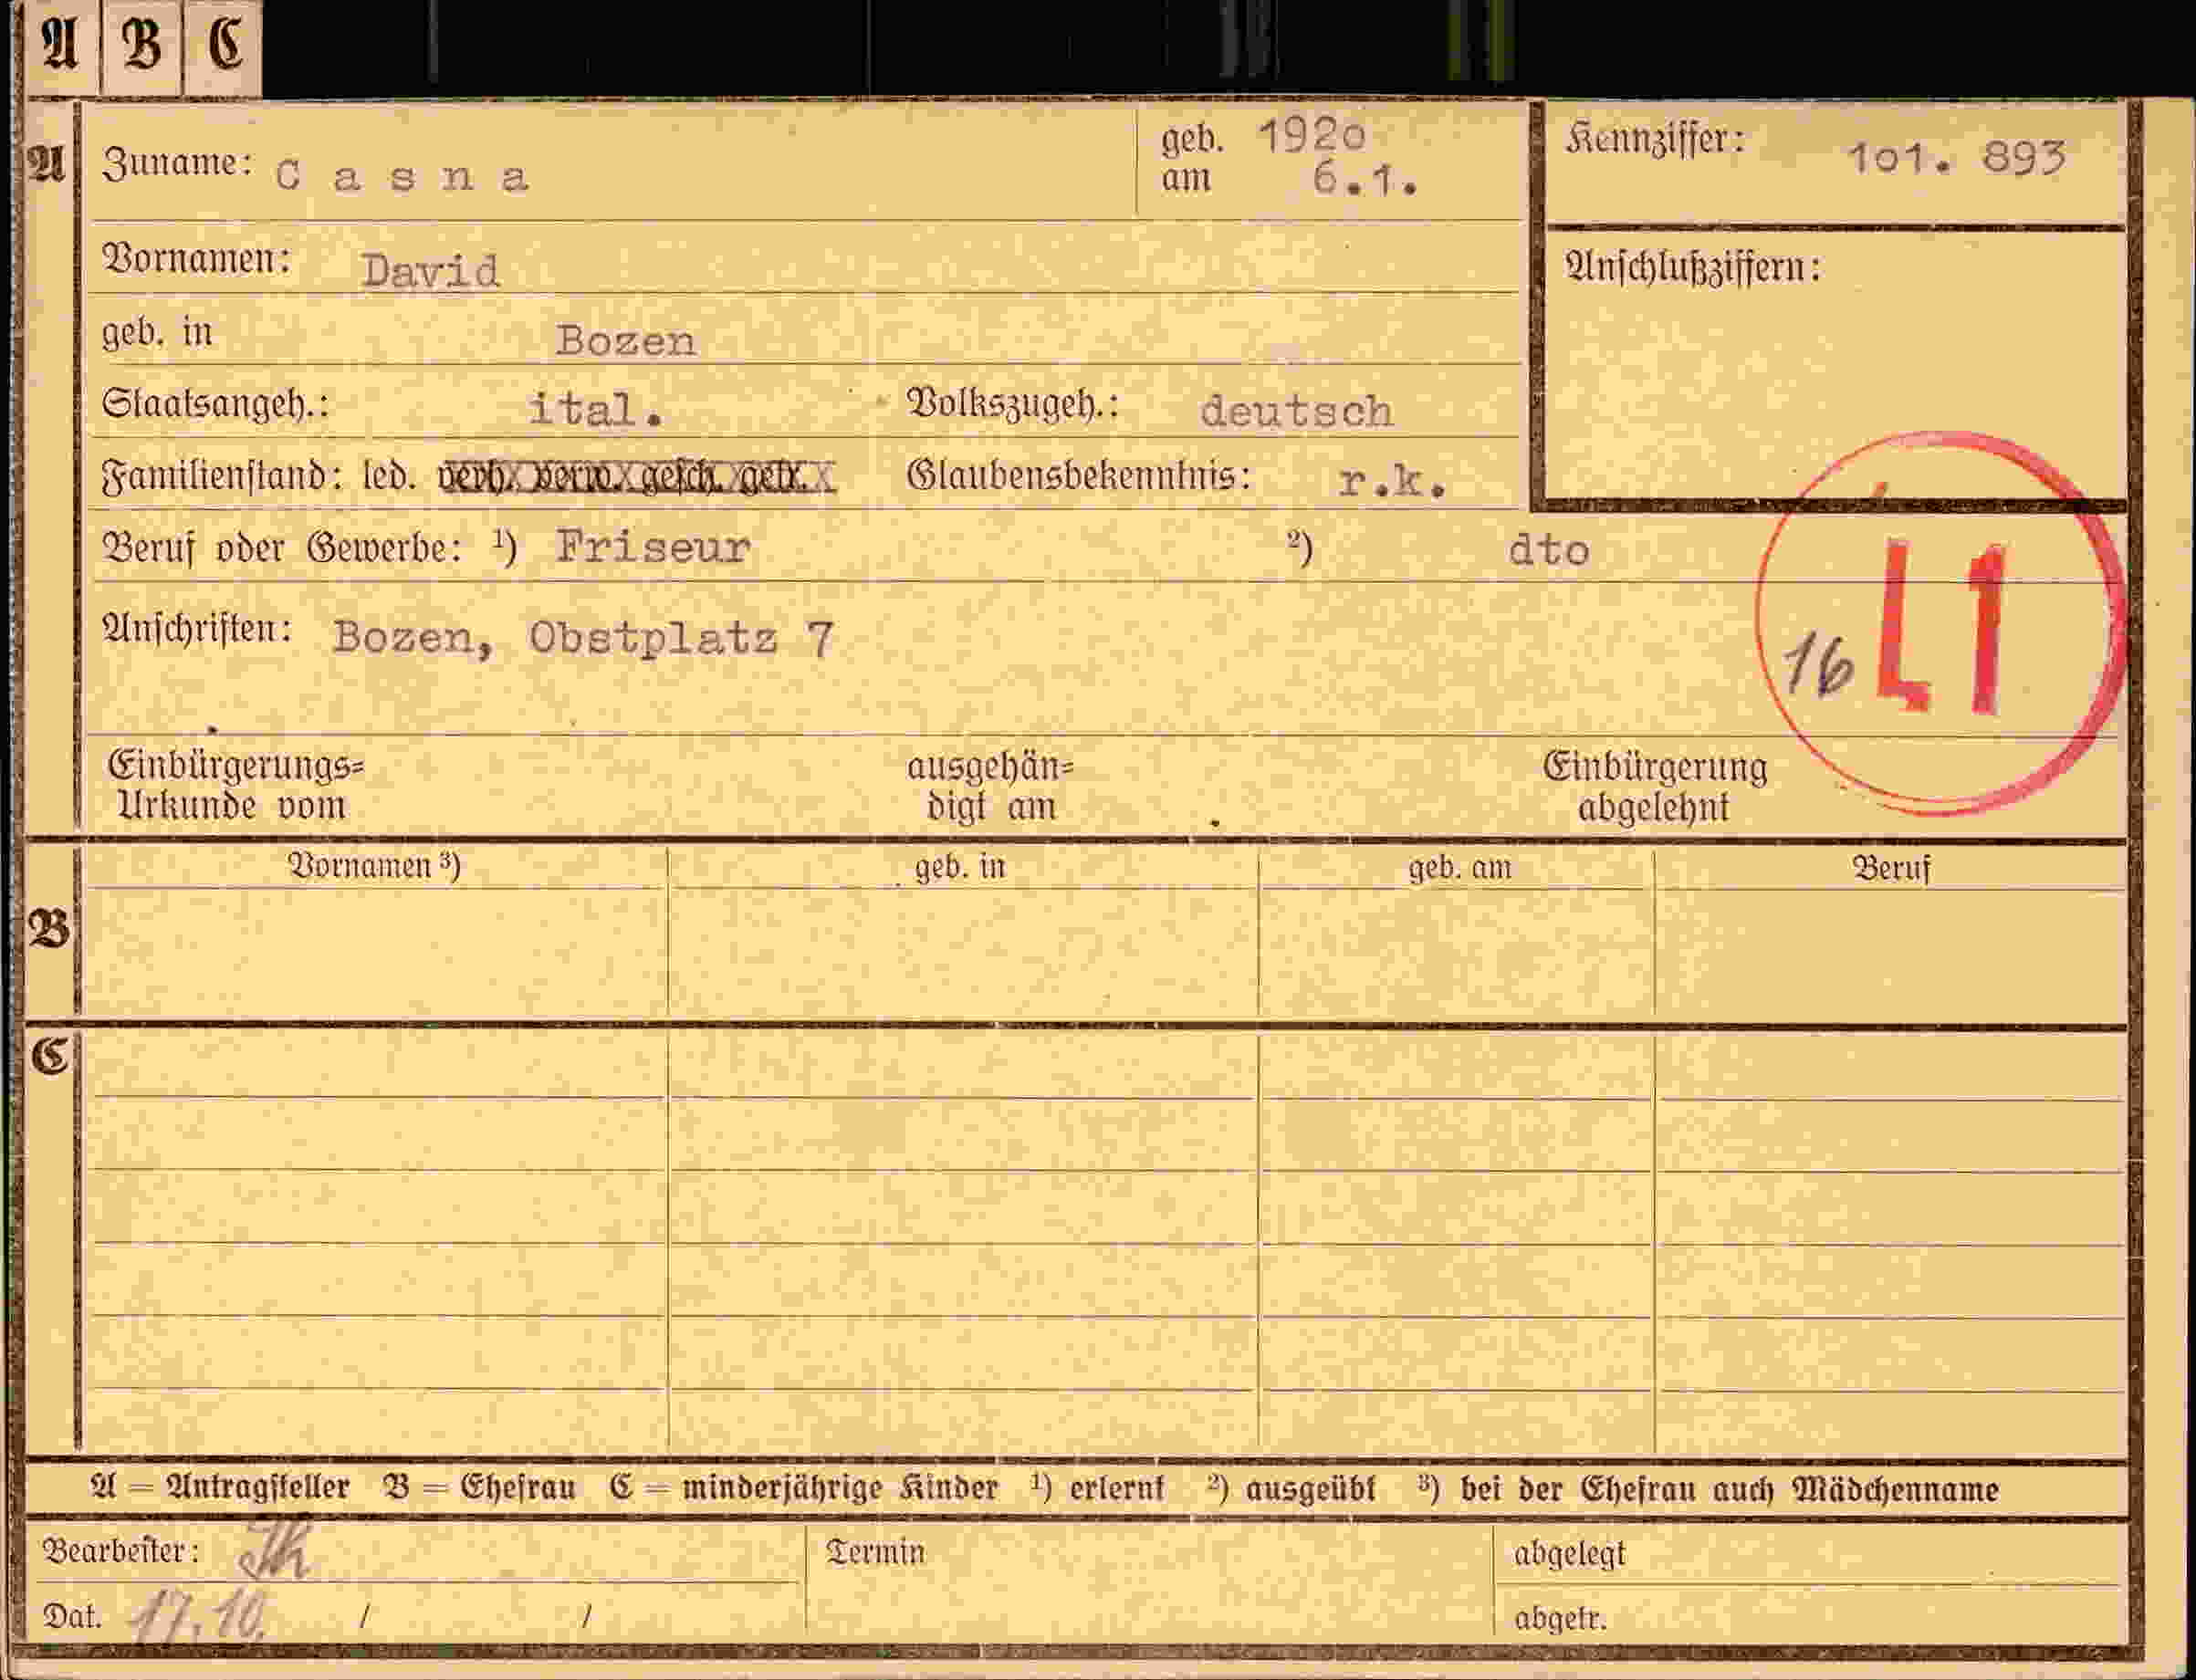 A B C
A Zuname: Casna geb. am 1920 6.1. Kennziffer: 101. 893
Vornamen: David Anschlußziffern:
geb. in Bozen
Staatsangeh.: ital. Volkszugeh.: deutsch
Familienstand: led. verh. verw. gesch. getr. Glaubensbekenntnis: r.k.
Beruf oder Gewerbe: ¹) Friseur ²) dto
L1
Anschriften: Bozen, Obstplatz 7
16
Einbürgerungs= ausgehän= Einbürgerung
Urkunde vom digt am abgelehnt
Vornamen ³) geb. in geb. am Beruf
B
C
A = Antragsteller B = Ehefrau C = minderjährige Kinder ¹) erlernt ²) ausgeübt ³) bei der Ehefrau auch Mädchenname
Bearbeiter: Termin abgelegt
Dat. 17.10. / / abgetr.